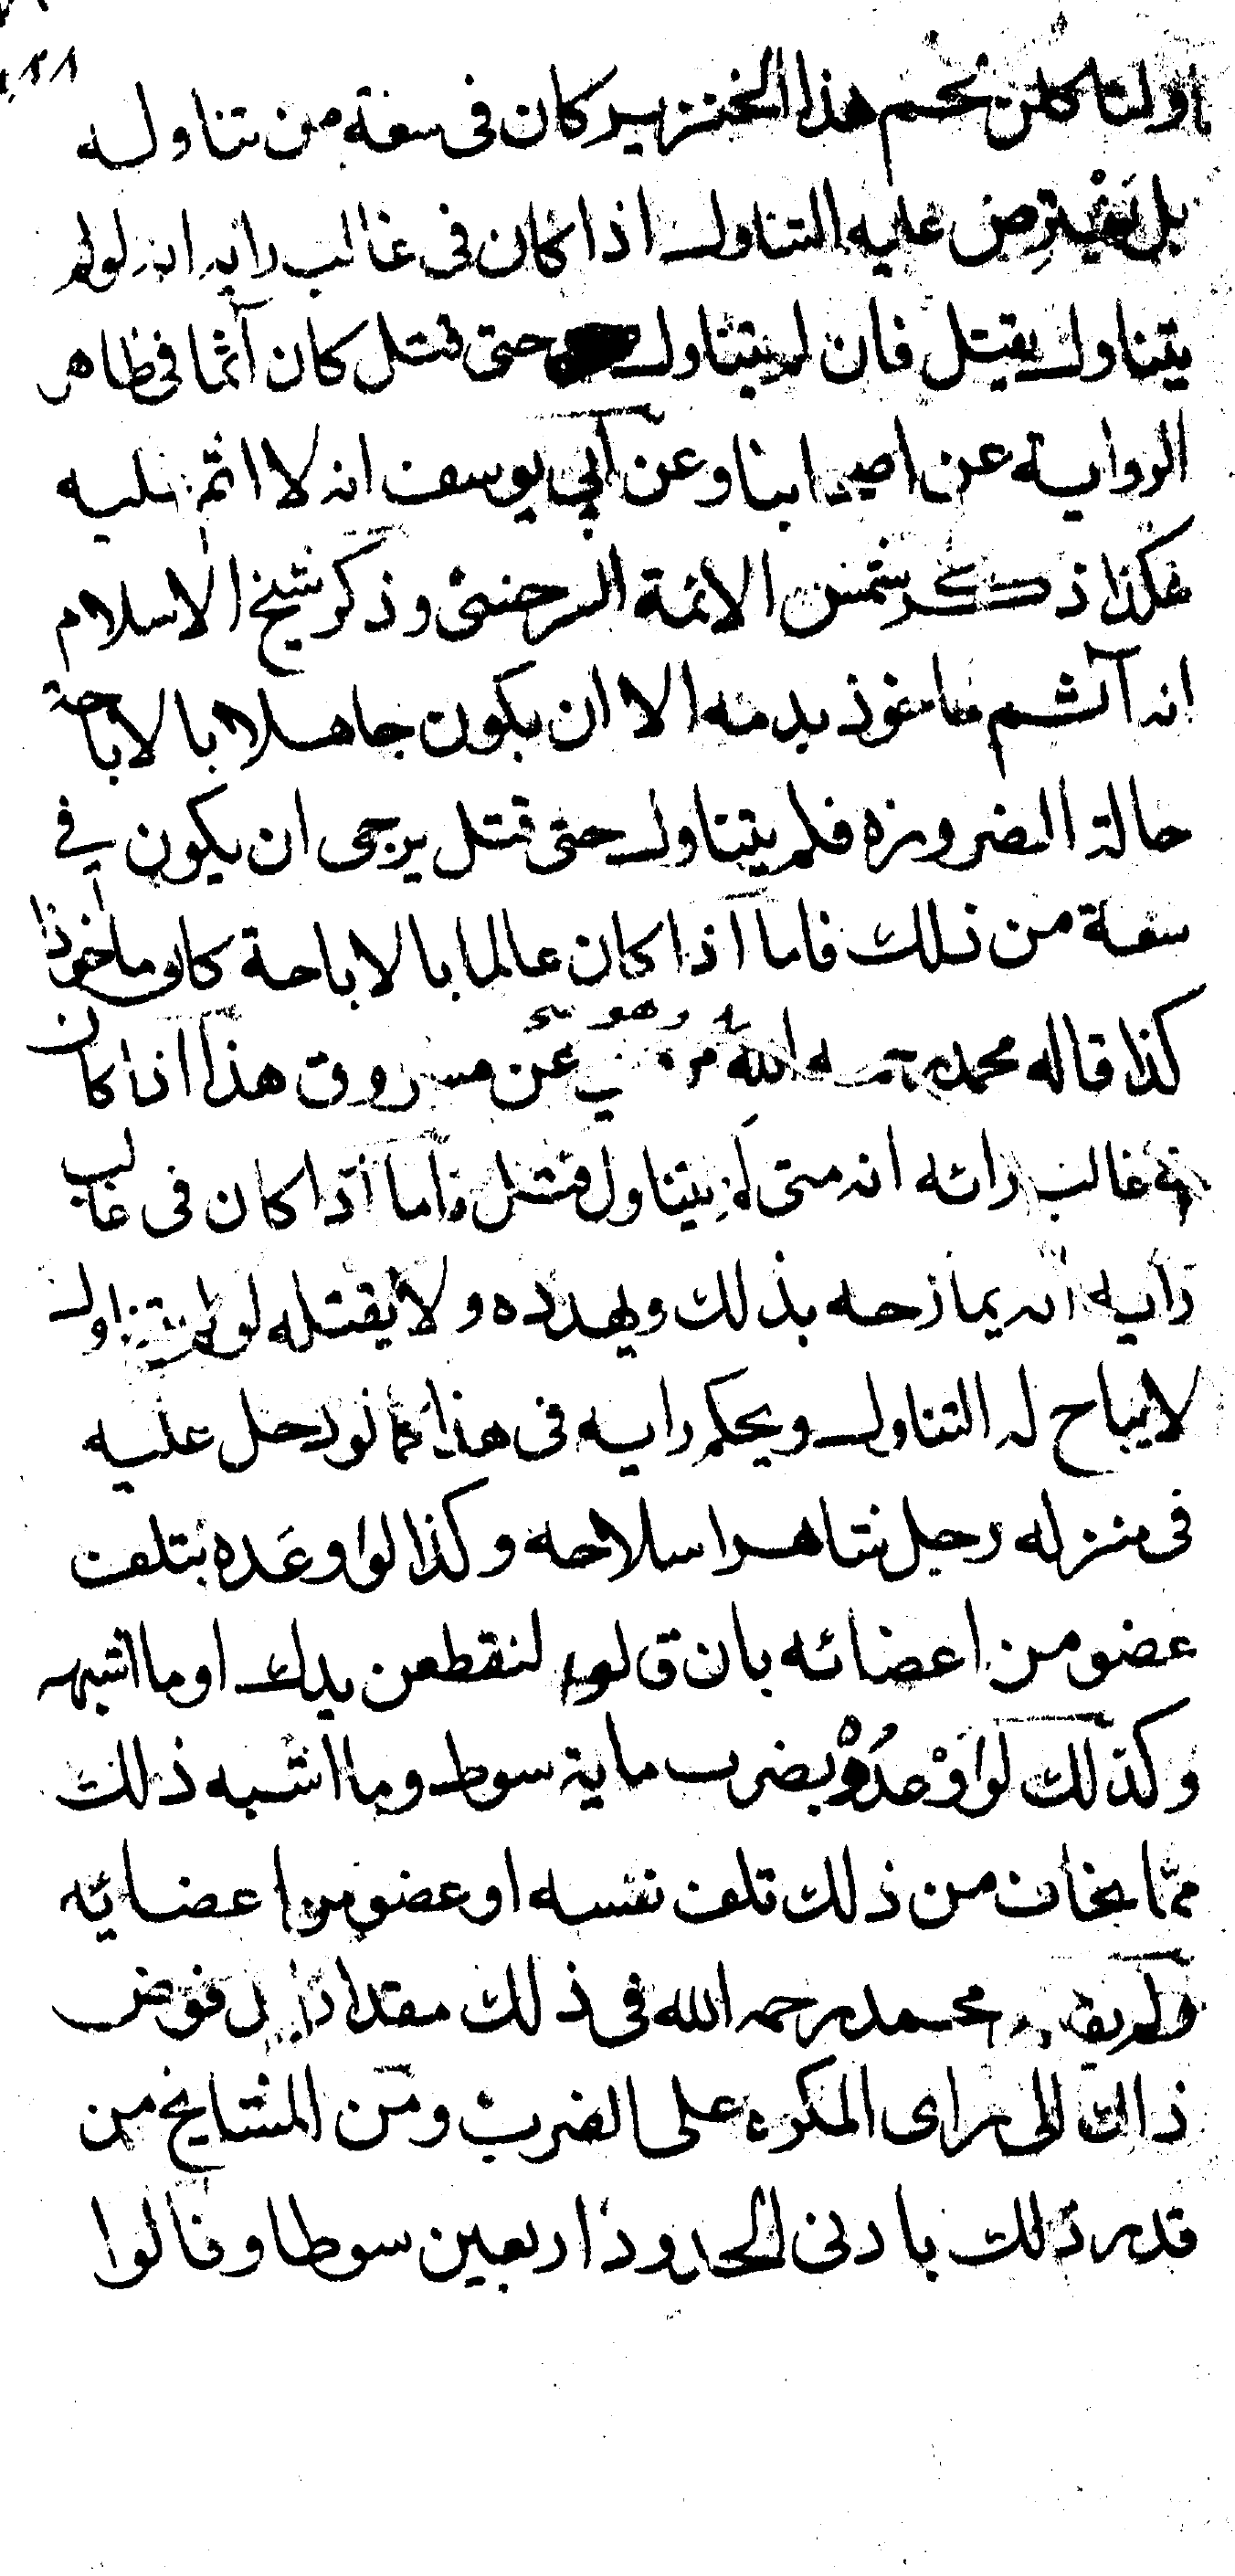 او لتاكلن لحم هذا الخنزير كان فى سعة من تناوله
بل يفترض عليه التناول اذا كان فى غالب رايه انه لو لم
يتناول يقتل فان لم يتناول حتى قتل كان آثما فى ظاهر
الرواية عن اصحابنا وعن ابي يوسف انه لا اثم عليه
هكذا ذكر شمس الائمة السرخسى وذكر شيخ الاسلام
انه آثم ماخوذ بدمه الا ان يكون جاهلا بالاباحة
حالة الضرورة فلم يتناول حتى قتل يرجى ان يكون في
سعة من ذلك فاما اذا كان عالما بالاباحة كان ماخوذا
كذا قاله محمد رحمه الله وهو عن مسروق هذا اذا كان
فى غالب رائه انه متى لم يتناول قتل فاما اذا كان فى غالب
رايه انه يمازحه بذلك ويهدده ولا يقتله لو لم يتناول
لا يباح له التناول ويحكم رايه فى هذا كما لو دخل عليه
فى منزله رجل شاهرا سلاحه وكذا لو اوعده بتلف
عضو من اعضائه بان قالوا لنقطعن يدك او ما اشبهه
وكذلك لو اوعدوه بضرب ماية سوط وما اشبه ذلك
مما يخاف من ذلك تلف نفسه او عضو من اعضايه
ولم يقدر محمد رحمه الله فى ذلك مقدارا بل فوض
ذلك الى راى المكره على الضرب ومن المشايخ من
قدر ذلك بادنى الحدود اربعين سوطا وقالوا